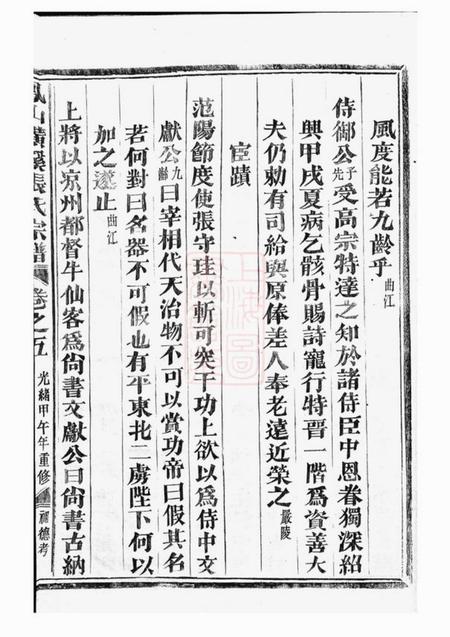 風度能若九齡乎曲江
侍御公予先受高宗特達之知於諸侍臣中恩眷獨深紹
興甲戌夏病乞骸骨賜詩寵行特晉一階爲資善大
夫仍勅有司給與原俸差人奉老遠近榮之嚴陵
宦蹟
范陽節度使張守珪以斬可突干功上欲以爲侍中文
獻公九齡曰宰相代天治物不可以賞功帝曰假其名
若何對曰名器不可假也有平東北二虜陛下何以
加之遂止曲江
上將以凉州都督牛仙客爲尚書文獻公曰尚書古納
橫溪張氏宗譜 卷之五 光緒甲午年重修 福德考